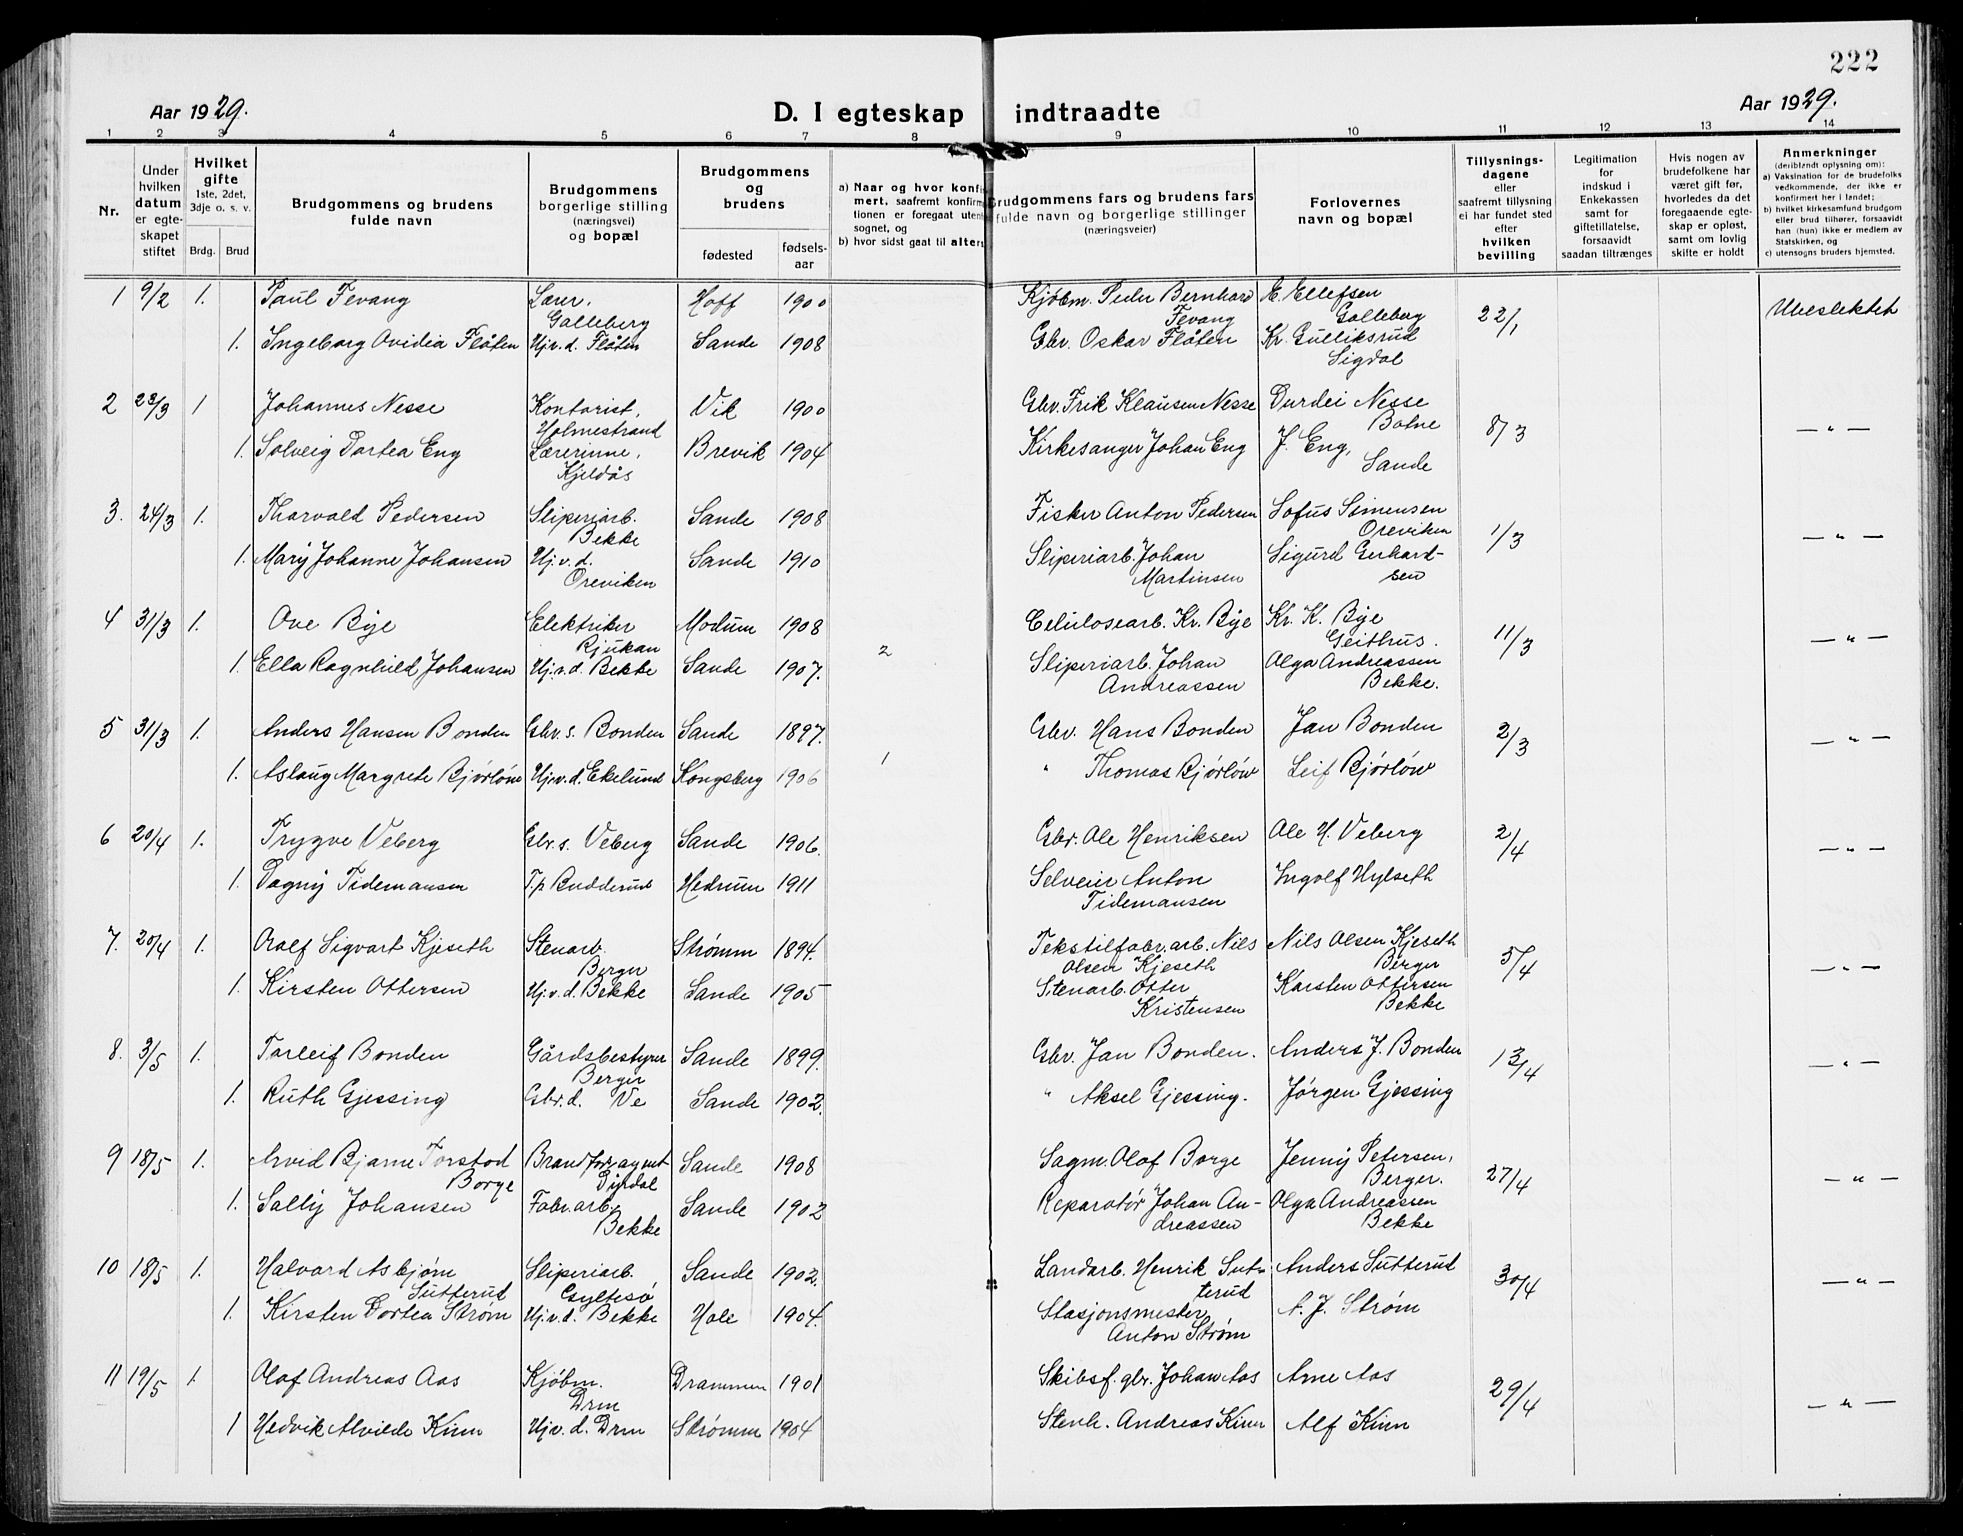 222
Aar 1929.
D. I egteskap indtraadte
Aar 1929.
1 2 3 4 5 6 7 8 9 10 11 12 13 14
Nr.
Under hvilken datum er egte-skapet stiftet
Hvilket gifte
1ste, 2det, 3dje o. s. v.
Brdg. Brud
Brudgommens og brudens fulde navn
Brudgommens borgerlige stilling (næringsvei) og bopæl
Brudgommens og brudens
fødested
fødsels-aar
a) Naar og hvor konfir
mert, saafremt konfirm
tionen er foregaat uten
sognet, og
b) hvor sidst gaat til alters
Brudgommens fars og brudens fars
fulde navn og borgerlige stillinger
(næringsveier)
Forlovernes navn og bopæl
Tillysnings-dagene eller saafremt tillysning ei har fundet sted efter hvilken bevilling
Legitimation for indskud i Enkekassen samt for giftetillatelse, forsaavidt saadan tiltrænges
Hvis nogen av brudefolkene har været gift før, hvorledes da det foregaaende egte-skap er opløst, samt om lovlig skifte er holdt
Anmerkninger
(deriblandt oplysning om):
a) Vaksination for de brudefolks vedkommende, der ikke er konfirmert her i landet;
b) hvilket kirkesamfund brudgom eller brud tilhører, forsaavidt han (hun) ikke er medlem av Statskirken, og
c) utensogns bruders hjemsted.
1 9/2 1. Paul Fevang Lærer, Hoff 1900 Kjøbm. Peder Bernhard E. Ellefsen 22/1 Ubeslektet
Galleberg Fevang Galleberg
1. Ingeborg Ovidia Flåten Ujv. d. Flåten Sande 1908 Gbr. Oskar Flåten Kr. Gulliksrud
Sigdal
2 23/3 1 Johannes Nesse Kontorist, Vik 1900 Gbr. Erik Klausen Nesse Durdei Nesse 8/3 — " —
Holmestrand Botne
1. Solveig Dortea Eng Lærerinne, Brevik 1904 Kirkesanger Johan Eng J. Eng,
Kjeldås Sande
3. 24/3 1. Thorvald Pedersen Sliperiarb. Sande 1908 Fisker Anton Pedersen Sofus Simensen 1/3 — " —
Bekke Oreviken
1. Mary Johanne Johansen Uj. v. d. Sande 1910 Sliperiarb. Johan Sigurd Gerhard-
Oreviken Martinsen sen
4 31/3 1. Ove Bye Elektriker Modum 1908 Celulosearb. Kr. Bye Kr. K. Bye 11/3 — " —
Rjukan Geithus.
2
1. Ella Ragnhild Johansen Uj. v. d. Bekke Sande 1907. Sliperiarb. Johan Olga Andreassen
Andreassen Bekke.
5 31/3 1. Anders Hansen Bonden Gbr. s. Bonden Sande 1897. Gbr. Hans Bonden Jan Bonden 2/3 — " —
1
1. Aslaug Margrete Bjørløw Ujv. d. Ekelund Kongsberg 1906 " Thomas Bjørløw Leif Bjørløw
6 20/4 1. Trygve Veberg Gbr. s. Veberg Sande 1906. Gbr. Ole Henriksen Ole H. Veberg 2/4 — " —
1. Dagny Tidemansen T.p Budderud Hedrum 1911 Selveier Anton Ingolf Hylseth
Tidemansen
7. 20/4 1. Rolf Sigvart Kjeseth Stenarb. Strømm 1894. Tekstilfabr. arb. Nils Nils Olsen Kjeseth 5/4 — " —
Berger Olsen Kjeseth Berger
1. Kirsten Ottersen Uj. v. d. Bekke Sande 1905 Stenarb. Otter Karsten Ottersen
Kristensen Bekke
8. 3/5 1. Torleif Bonden Gårdsbestyrer Sande 1899. Gbr. Jan Bonden. Anders J. Bonden 13/4 — " —
Berger
1. Ruth Gjessing Gbr. d. Ve Sande 1902. " Aksel Gjessing. Jørgen Gjessing
9 18/5 1. Arvid Bjarne Torstad Brandforagent Sande 1908 Sagm. Olaf Borge Jenny Petersen, 27/4 — " —
Borge Dyrdal Berger.
1. Sally Johansen Fabr. arb. Sande 1902 Reparatør Johan An- Olga Andreassen
Bekke dreassen Bekke
10 18/5 1. Halvard Asbjørn Sliperiarb. Sande 1902. Landarb. Henrik Sut- Anders Sutterud 30/4 — " —
Sutterud Gyltesø terud
1. Kirsten Dortea Strøm Uj. v. d. Bekke Hole 1904. Stasjonsmester A. J. Strøm
Anton Strøm
11 19/5 1. Olaf Andreas Aas Kjøbm. Drammen 1901 Skibsf. gbr. Johan Aas Arne Aas 29/4 — " —
Drm
1 Hedvik Alvilde Kinn Ujv. d. Drm Strømm 1904 Stenh. Andreas Kinn Alf Kinn